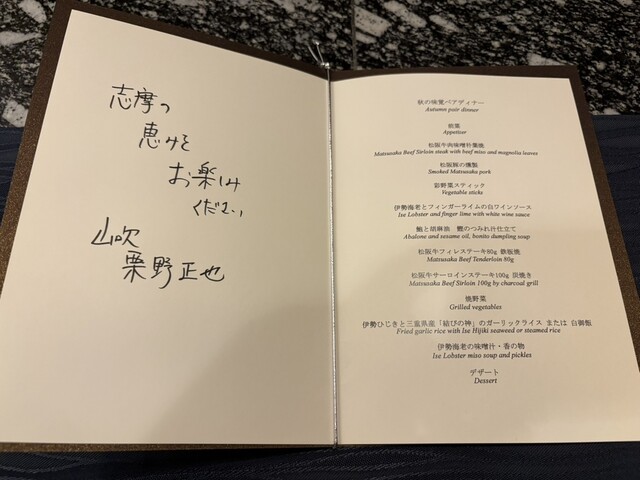 志摩の
恵みを
お楽しみ
ください
山吹
栗野正也
秋の味覚ペアディナー
Autumn pair dinner
前菜
Appetizer
松阪牛肉味噌朴葉焼
Matsusaka Beef Sirloin steak with beef miso and magnolia leaves
松阪豚の燻製
Smoked Matsusaka pork
彩野菜スティック
Vegetable sticks
伊勢海老とフィンガーライムの白ワインソース
Ise Lobster and finger lime with white wine sauce
鮑と胡麻油 鰹のつみれ汁仕立て
Abalone and sesame oil, bonito dumpling soup
松阪牛フィレステーキ80g 鉄板焼
Matsusaka Beef Tenderloin 80g
松阪牛サーロインステーキ100g 炭焼き
Matsusaka Beef Sirloin 100g by charcoal grill
焼野菜
Grilled vegetables
伊勢ひじきと三重県産「結びの神」のガーリックライス または 白御飯
Fried garlic rice with Ise Hijiki seaweed or steamed rice
伊勢海老の味噌汁・香の物
Ise Lobster miso soup and pickles
デザート
Dessert